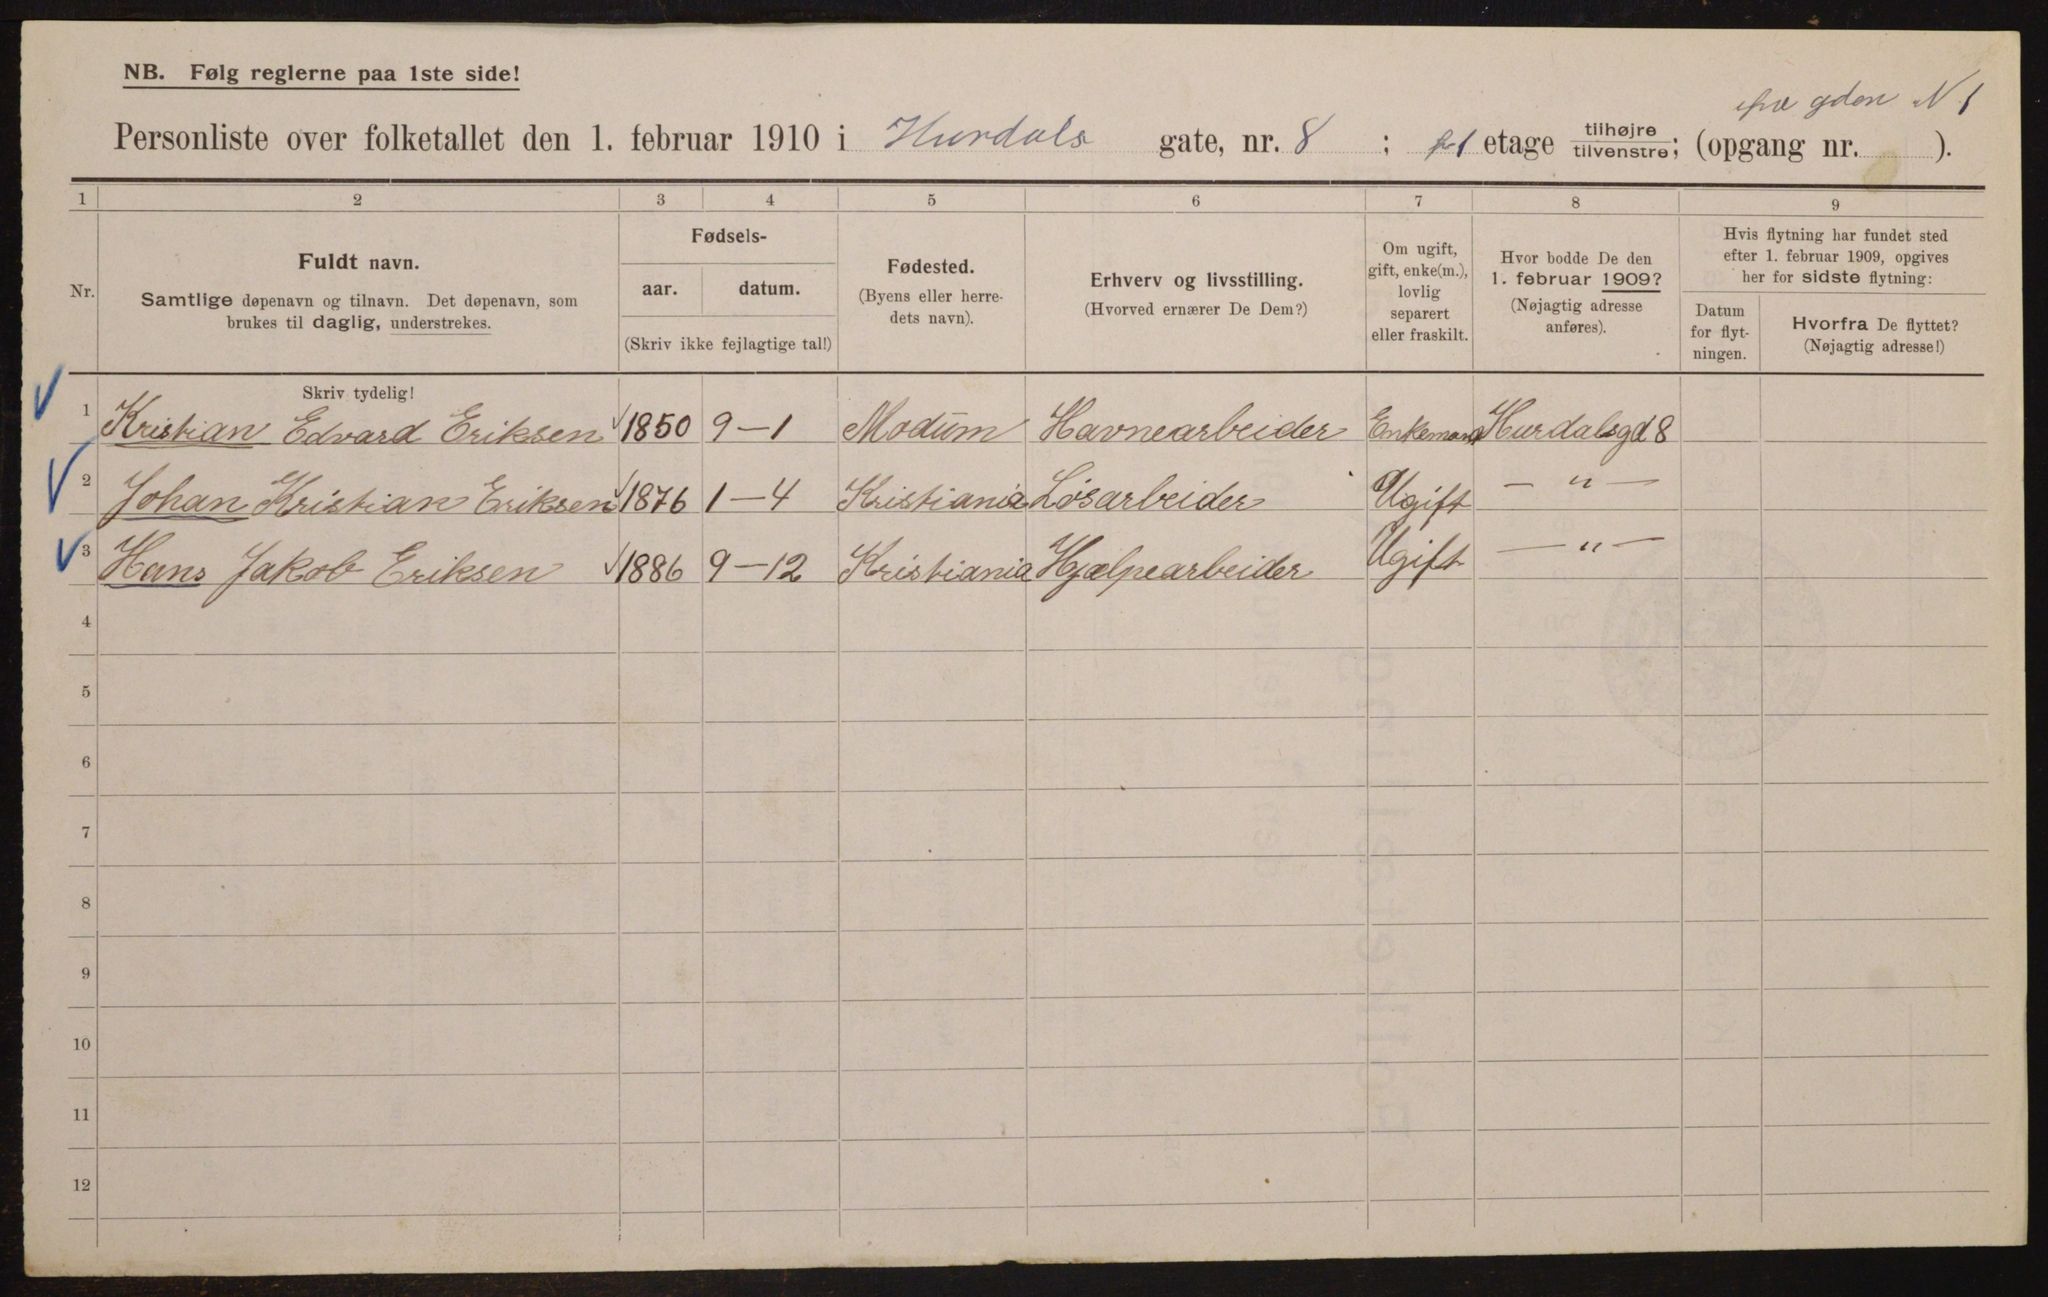 NB. Følg reglerne paa 1ste side!
gden N 1
Personliste over folketallet den 1. februar 1910 i Hurdals gate, nr. 8 ; 1 etage tilhøjre tilvenstre; (opgang nr. ).
1 2 3 4 5 6 7 8 9
Nr.
Fuldt navn.
Samtlige døpenavn og tilnavn. Det døpenavn, som
brukes til daglig, understrekes.
Fødsels-
aar. datum.
(Skriv ikke fejlagtige tal!)
Fødested.
(Byens eller herre-
dets navn).
Erhverv og livsstilling.
(Hvorved ernærer De Dem?)
Om ugift,
gift, enke(m.),
lovlig
separert
eller fraskilt.
Hvor bodde De den
1. februar 1909?
(Nøjagtig adresse
anføres).
Hvis flytning har fundet sted
efter 1. februar 1909, opgives
her for sidste flytning:
Datum
for flyt-
ningen.
Hvorfra De flyttet?
(Nøjagtig adresse!)
Skriv tydelig!
1 Kristian Edvard Eriksen 1850 9–1 Modum Havnearbeider Enkemand Hurdalsgd 8
2 Johan Kristian Eriksen 1876 1–4 Kristiania Løsarbeider Ugift — " —
3 Hans Jakob Eriksen 1886 9–12 Kristiania Hjælpearbeider Ugift — " —
4
5
6
7
8
9
10
11
12